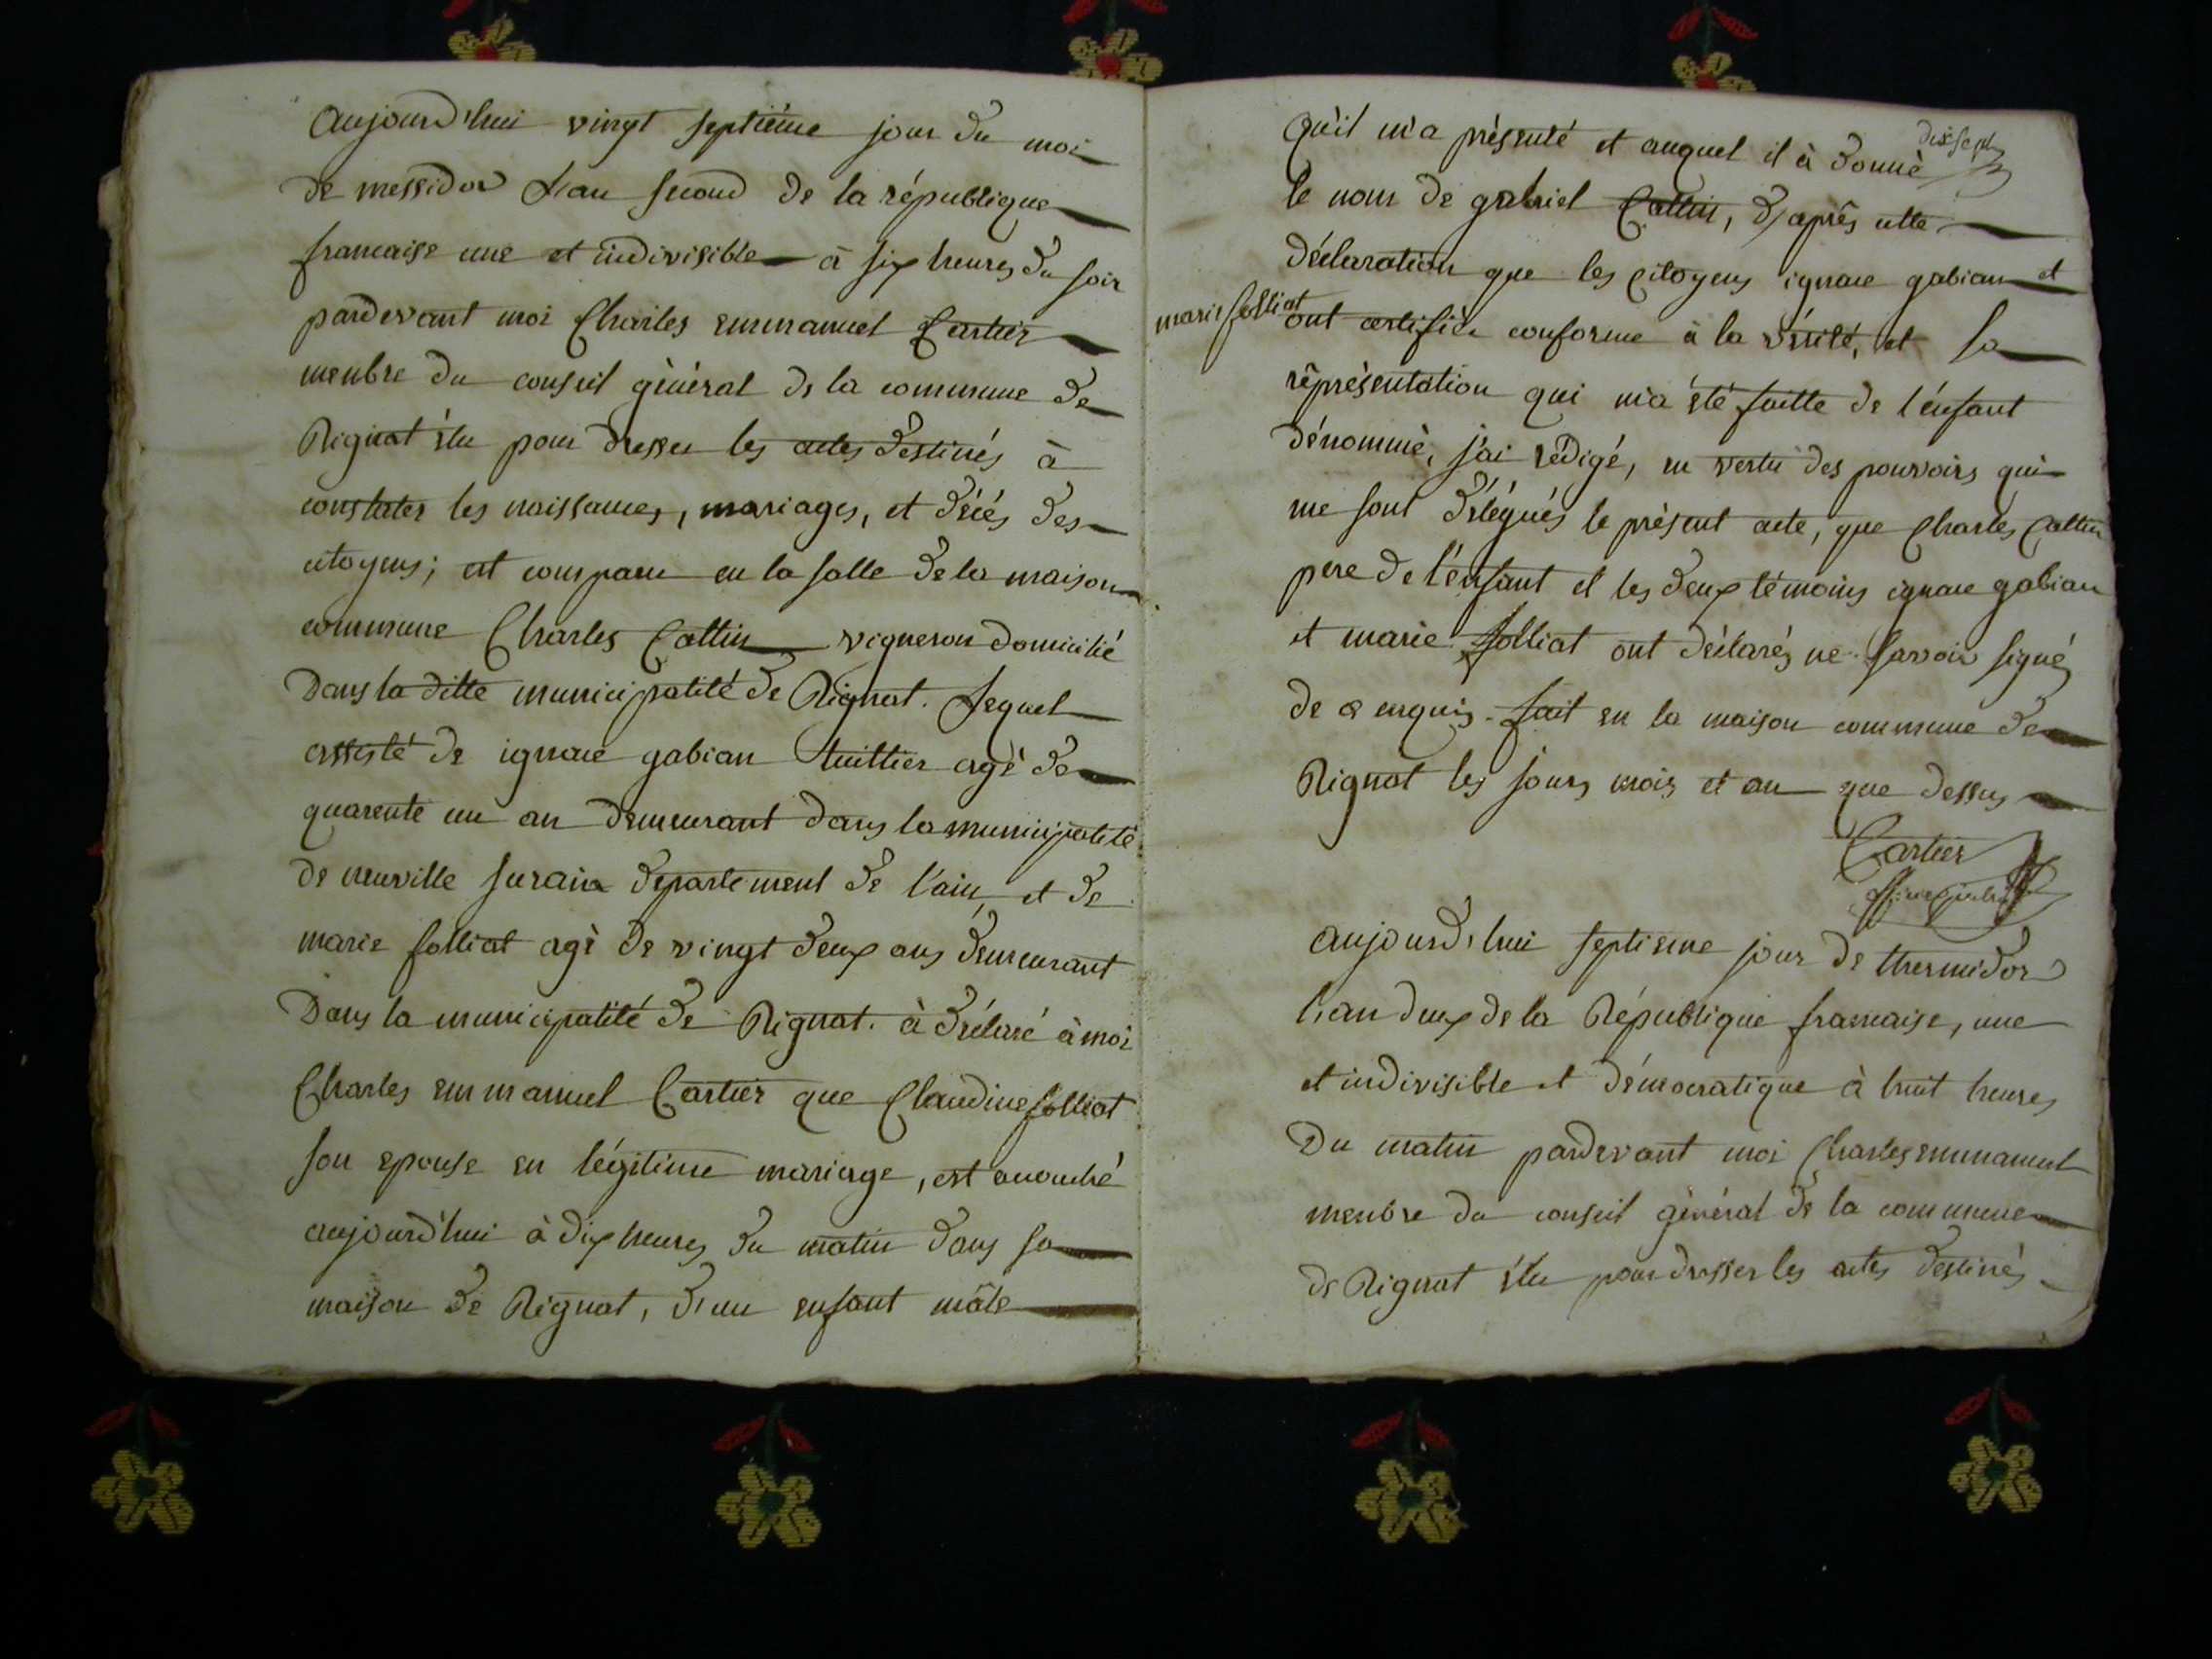 aujourd'hui vingt septiéme jour du moi
de messidor L'an second de la république
francaise une et indivisible à six heures du soir
pardevant moi Charles emmanuel Cartier
menbre du conseil gènèral de la commune de
Rignat élu pour dresser les actes destinés à
constater les naissances, mariages, et décés des
citoyens; est comparu en la salle de la maison
commune Charles Cottin vigneron domicilié
Dans la ditte municipalité de Rignat. Lequel
assisté de ignace gabian tuillier agé de
quarente un an demeurant dans la municipalité
de neuville surain departement de l'ain, et de
marie folliat agè de vingt deux ans demeurant
Dans la municipalité de Rignat. à déclaré à moi
Charles emmanuel Cartier que Claudine folliat
son epouse en légitime mariage, est accouché
aujourd'hui à dix heures du matin dans sa
maison de Rignat, d'un enfant mâle
dix sept
qu'il m'a présenté et auquel il à donnè
le nom de gabriel Cottin, d'après cette
déclaration que les citoyens ignace gabian et
marie folliat ont certifiée conforme à la vérité, et la
réprèsentation qui m'a été faitte de l'énfant
dénommè, j'ai rédigé, en vertu des pouvoirs qui
me sont délégués le prèsent acte, que Charles Cottin
pere de l'énfant et les deux témoins ignace gabian
et marie folliat ont déclarés ne savoir signé
de ce enquis. fait en la maison commune de
Rignat les jours mois et an que dessus
Cartier
officier public
aujourd'hui septieme jour de thermidor
l'an deux de la République francaise, une
et indivisible et démocratique à huit heures
Du matin pardevant moi Charles emmanuel
menbre du conseil gènèral de la commune
de Rignat élu pour dresser les actes destinés